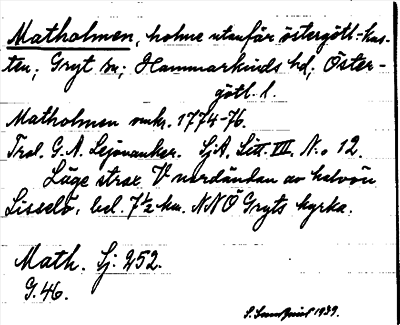 Matholmen, holme utanför östergötl-kus-
ten; Gryt sn; Hammarkinds hd; Öster-
götl. l.
Matholmen omkr. 1774-76.
Trol. G. A. Lejonanker. SjA, Litt. VII. N:o 12.
Läge strax V nordändan av halvön
Lisselö, bel. 7½ km. NNÖ Gryts kyrka.
Math. Sj: 252.
G. 46.
1939.